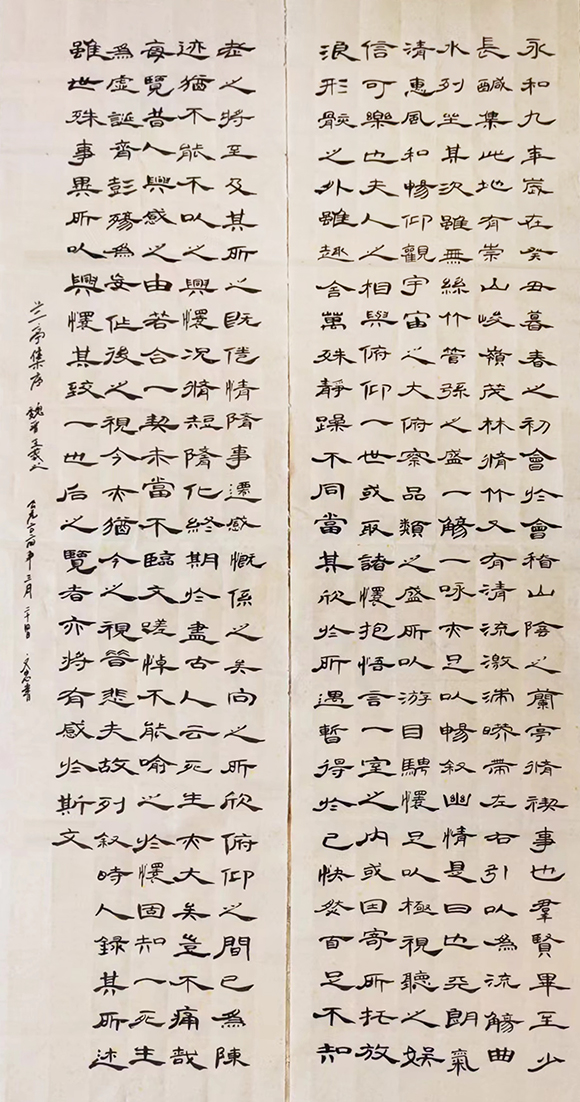 永和九年歲在癸丑暮春之初會於會稽山陰之蘭亭脩禊事也羣賢畢至少
長鹹集此地有崇山峻嶺茂林脩竹又有清流激湍暎帶左右引以為流觴曲
水列坐其次雖無絲竹管弦之盛一觴一咏亦足以暢敘幽情是日也天朗氣
清惠風和暢仰觀宇宙之大俯察品類之盛所以游目騁懷足以極視聽之娛
信可樂也夫人之相與俯仰一世或取諸懷抱悟言一室之內或因寄所托放
浪形骸之外雖趣舍萬殊靜躁不同當其欣於所遇暫得於己快然自足不知
老之將至及其所之既倦情隨事遷感慨係之矣向之所欣俯仰之間已為陳
迹猶不能不以之興懷況脩短隨化終期於盡古人云死生亦大矣豈不痛哉
每覽昔人興感之由若合一契未嘗不臨文嗟悼不能喻之於懷固知一死生
為虛誕齊彭殤為妄作後之視今亦猶今之視昔悲夫故列敘時人錄其所述
雖世殊事異所以興懷其致一也后之覽者亦將有感於斯文
兰亭集序 魏晋王羲之